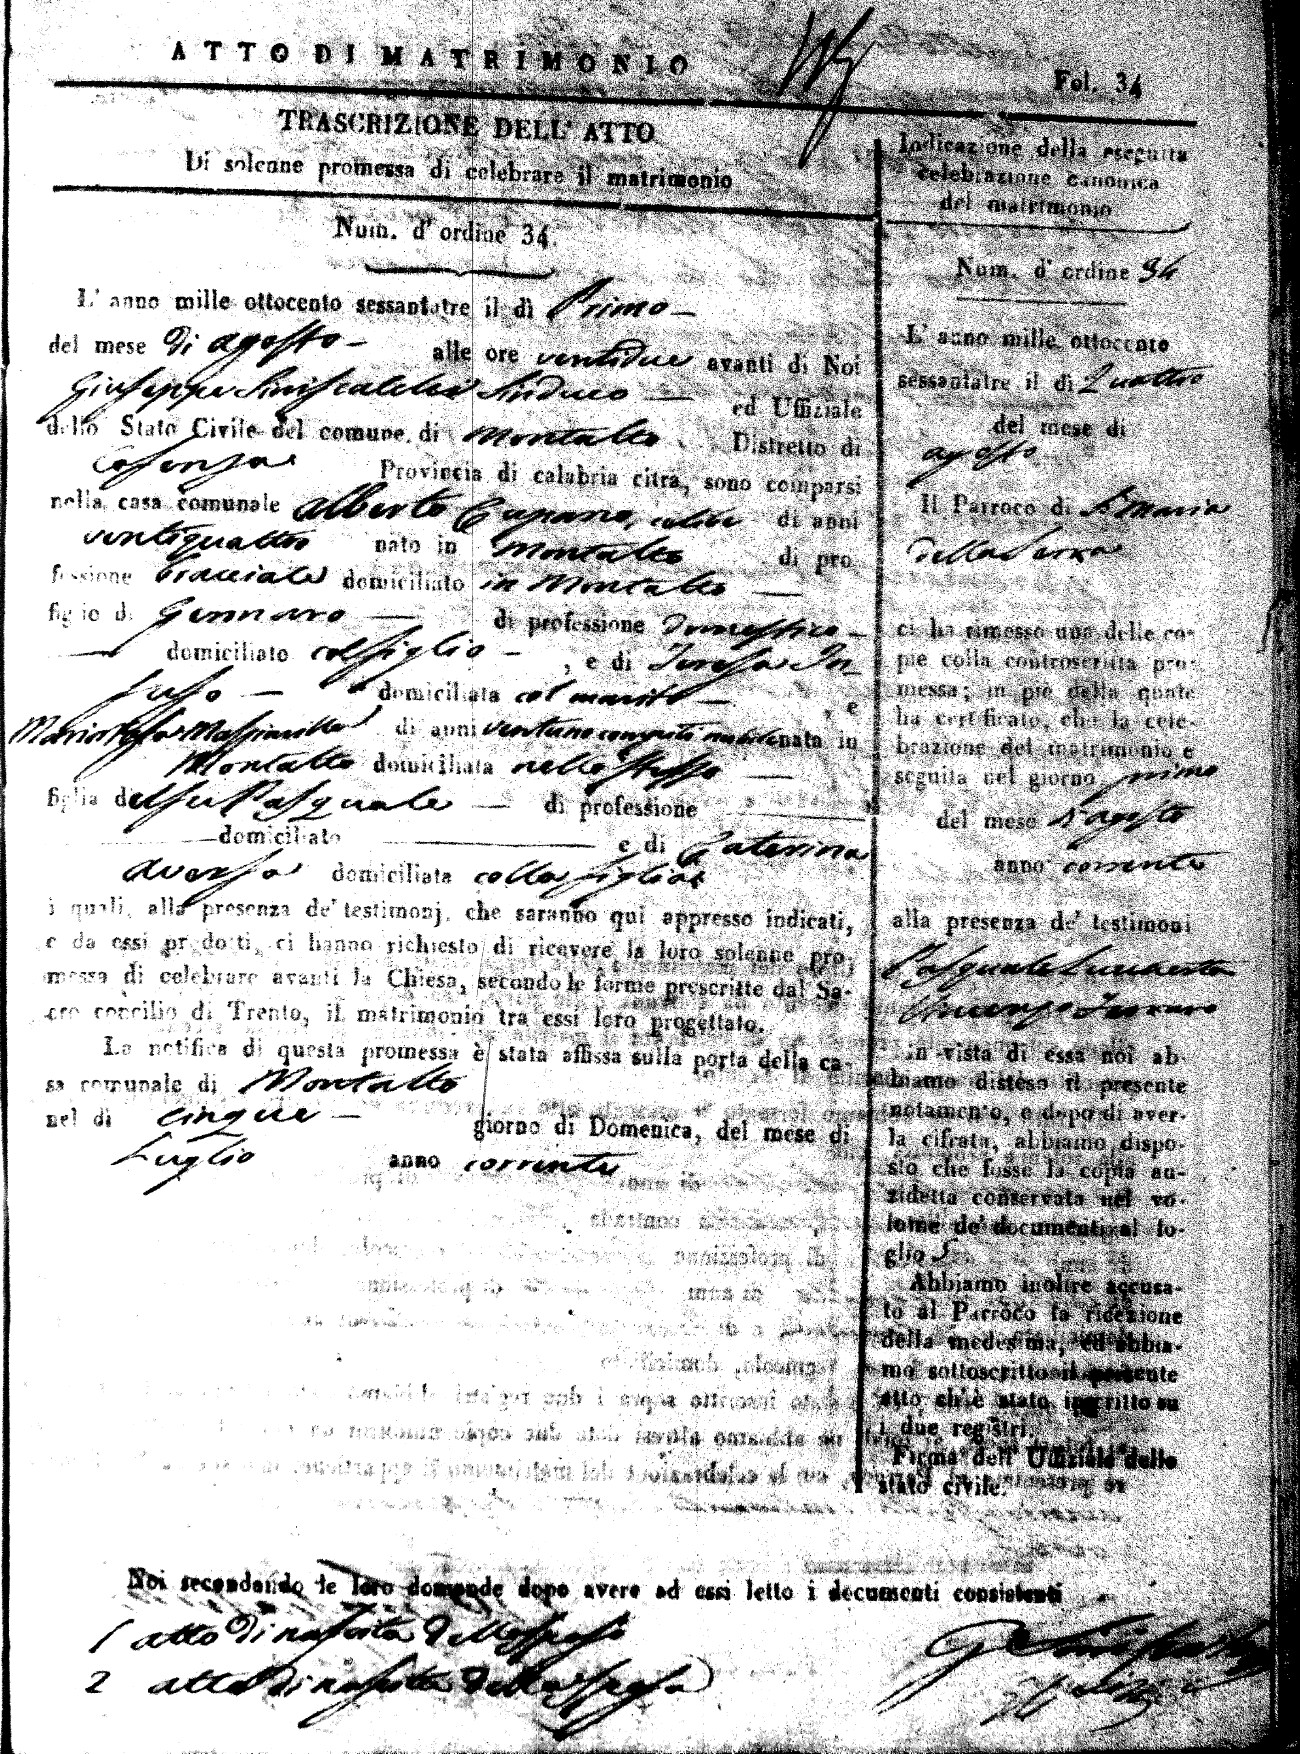 ATTO DI MATRIMONIO
Fol. 34
TRASCRIZIONE DELL' ATTO
Di solenne promessa di celebrare il matrimonio
Num. d' ordine 34.
L' anno mille ottocento sessantatre il dì Primo
del mese di agosto alle ore ventidue avanti di Noi
Giuseppe Siniscalchi Sindaco ed Uffiziale
dello Stato Civile del comune di Montalto Distretto di
Cosenza Provincia di calabria citra, sono comparsi
nella casa comunale Alberto Cupano, celibe di anni
ventiquattro nato in Montalto di pro
fessione bracciale domiciliato in Montalto
figlio di Gennaro di professione Domestico
domiciliato col figlio , e di Teresa
domiciliata col marito , e
Maria Rosa di anni ventuno compiti nata in
Montalto domiciliata nello stesso
figlia del fu Pasquale di professione
domiciliato e di Caterina
Aversa domiciliata colla figlia
i quali, alla presenza de' testimonj, che saranno qui appresso indicati,
e da essi prodotti, ci hanno richiesto di ricevere la loro solenne pro
messa di celebrare avanti la Chiesa, secondo le forme prescritte dal Sa-
cro concilio di Trento, il matrimonio tra essi loro progettato.
La notifica di questa promessa è stata affissa sulla porta della ca-
sa comunale di Montalto
nel di cinque giorno di Domenica, del mese di
Luglio anno corrente
Noi secondando le loro domande dopo avere ad essi letto i documenti consistenti
1 atto di nascita dello sposo
2 atto di nascita della sposa
Indicazione della eseguita
celebrazione canonica
del matrimonio
Num. d' ordine 34
L' anno mille ottocento
sessantatre il di Quattro
del mese di
agosto
Il Parroco di S. Maria
della Serra
ci ha rimesso una delle co-
pie colla controscritta pro-
messa; in piè della quale
ha certificato, che la cele-
brazione del matrimonio è
seguita nel giorno primo
del mese d'agosto
anno corrente
alla presenza de' testimoni
Pasquale
Vincenzo Ferraro
in vista di essa noi ab-
biamo disteso il presente
notamento, e dopo di aver-
la cifrata, abbiamo dispo-
sto che fosse la copia au-
zidetta conservata nel vo-
lome de' documenti al fo-
glio 5
Abbiamo inoltre accusa-
to al Parroco la ricezione
della medesima, ed abbia-
mo sottoscritto il presente
atto ch'è stato inscritto su
i due registri.
Firma dell' Uffiziale dello
stato civile.